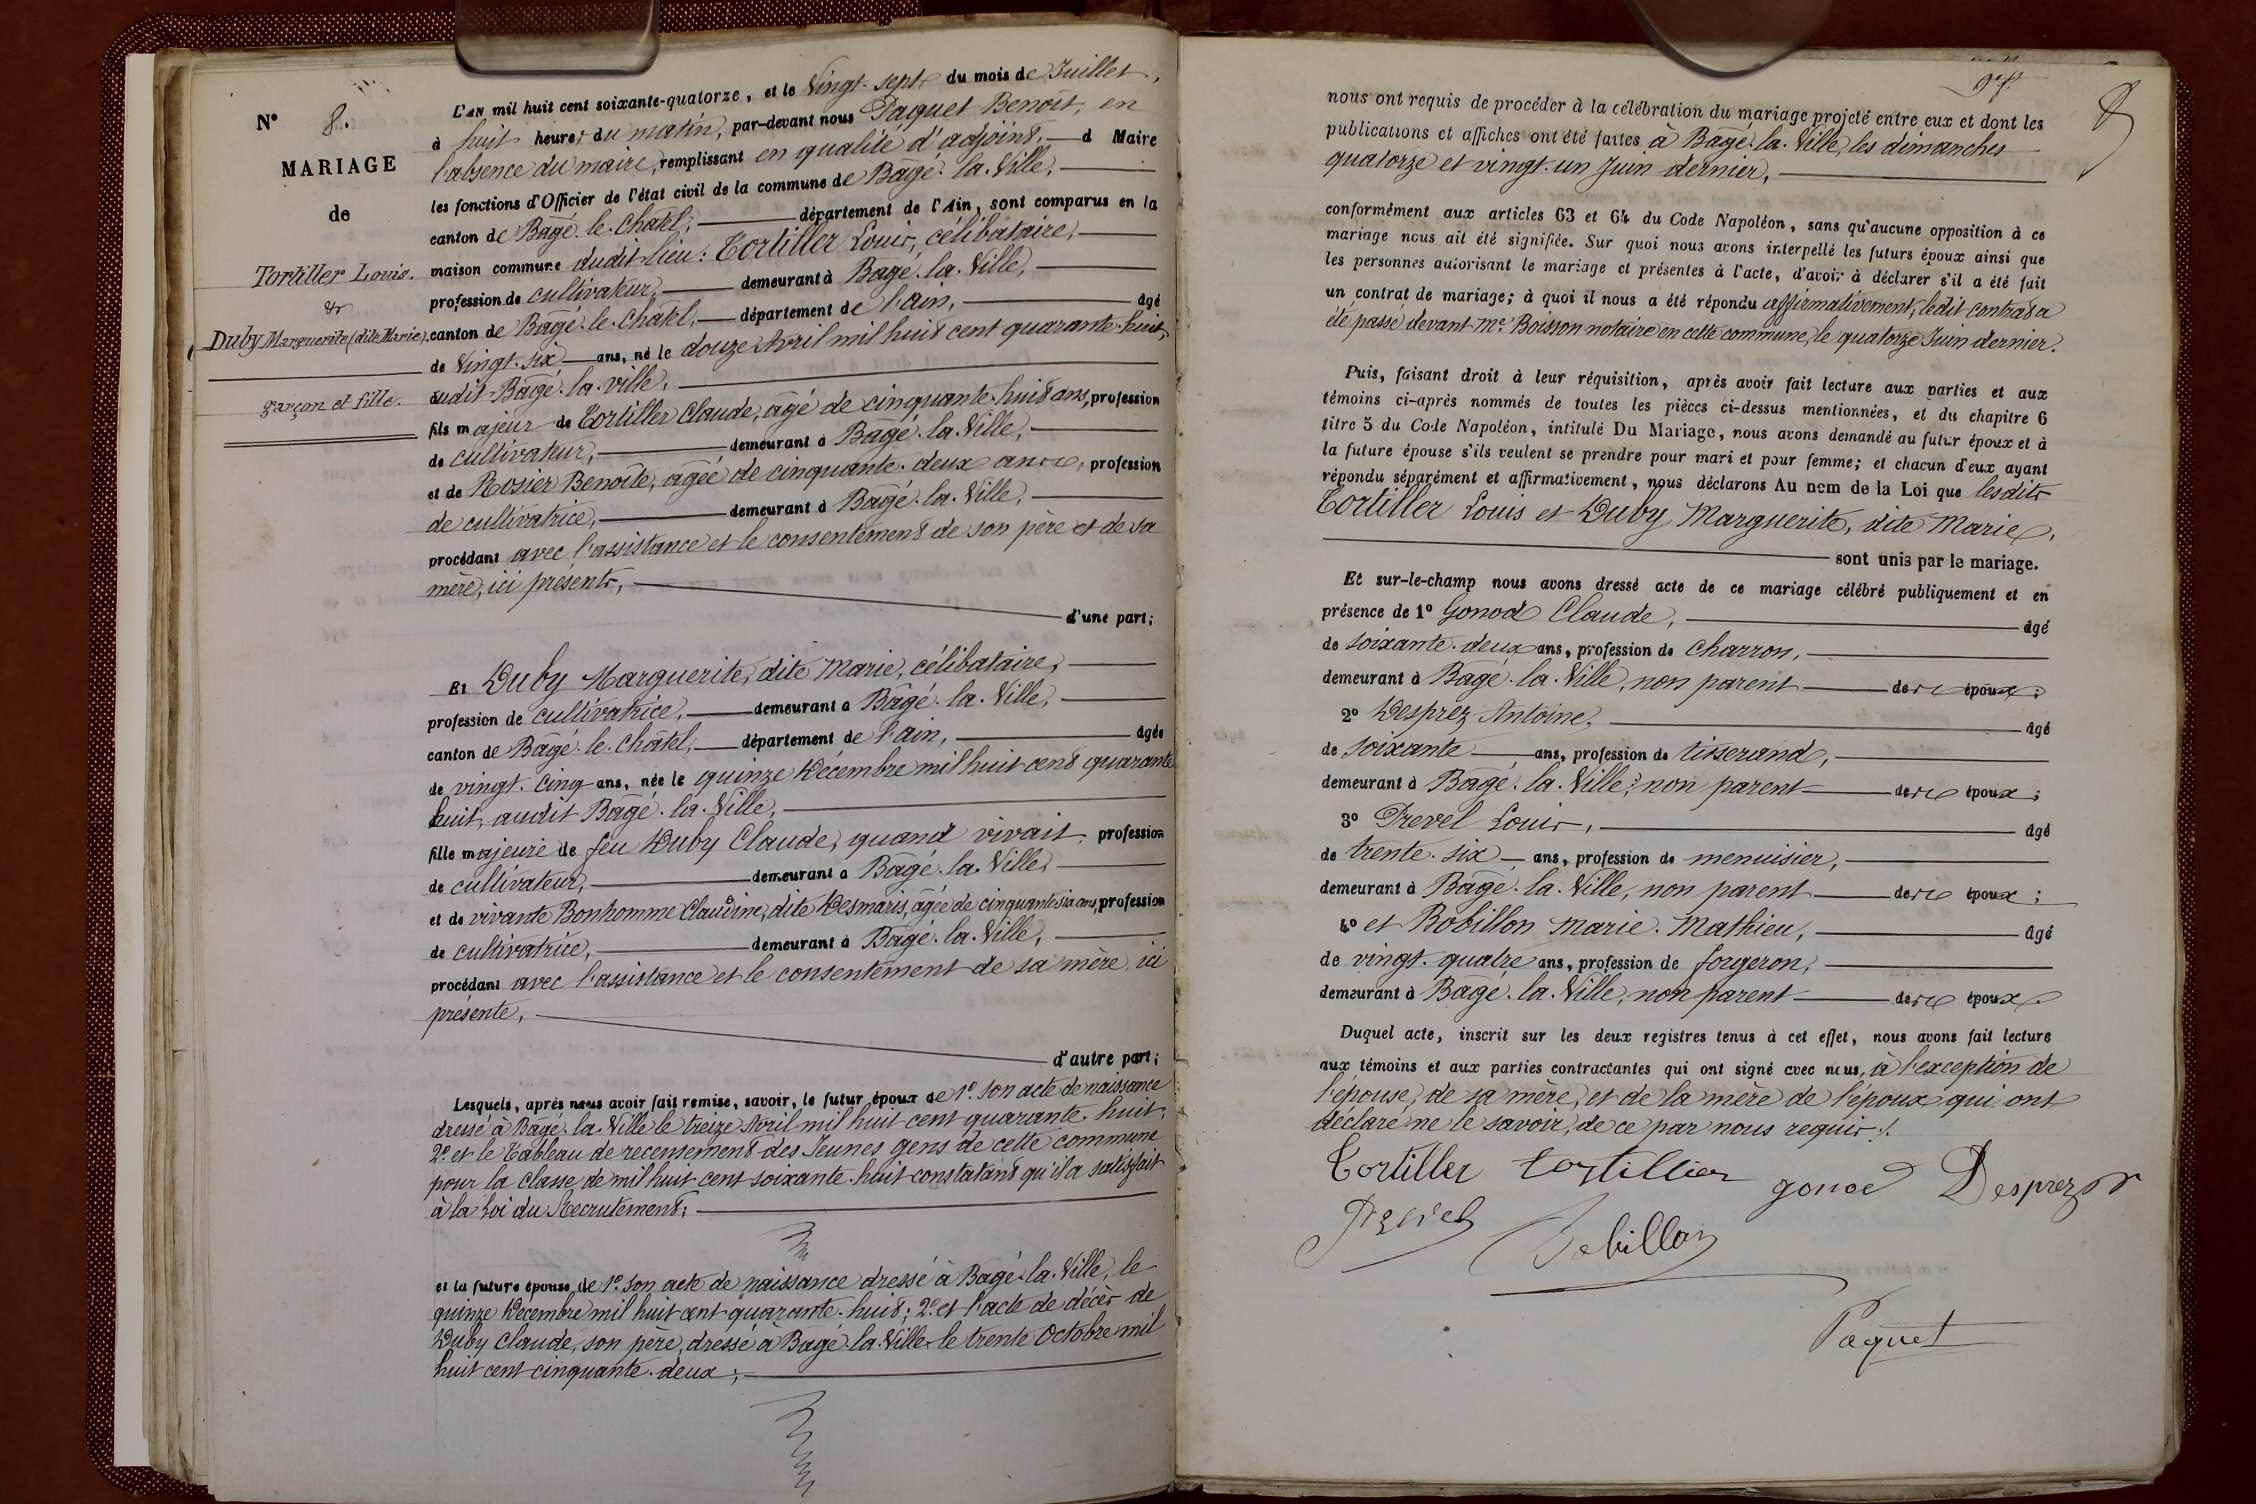 N° 8.
MARIAGE
de
Tortiller Louis.
&
Duby Marguerite (dite Marie).
garçon et fille.
L'AN mil huit cent soixante-quatorze, et le Vingt-sept du mois de Juillet,
à huit heures du matin, par-devant nous Paquet Benoît, en
l'absence du maire, remplissant en qualité d'adjoint. d Maire
les fonctions d'Officier de l'état civil de la commune de Bâgé-la-Ville,
canton de Bâgé-le-Châtel, département de l'Ain, sont comparus en la
maison commune dudit lieu : Tortiller Louis, célibataire,
profession de cultivateur, demeurant à Bâgé-la-Ville,
canton de Bâgé-le-Châtel, département de l'ain, âgé
de Vingt-six ans, né le douze Avril mil huit cent quarante-huit,
audit Bâgé-la-ville,
fils majeur de Tortiller Claude, âgé de cinquante-huit ans, profession
de cultivateur, demeurant à Bâgé-la-Ville,
et de Rosier Benoîte, âgée de cinquante-deux ans, profession
de cultivatrice, demeurant à Bâgé-la-Ville,
procédant avec l'assistance et le consentement de son père et de sa
mère, ici présents,
d'une part;
Et Duby Marguerite, dite Marie, célibataire,
profession de cultivatrice, demeurant à Bâgé-la-Ville,
canton de Bâgé-le-Châtel, département de l'ain, âgée
de vingt-cinq ans, née le quinze Décembre mil huit cent quarante
huit, audit Bâgé-la-Ville,
fille majeure de feu Duby Claude, quand vivait, profession
de cultivateur, demeurant à Bâgé-la-Ville,
et de vivante Bonhomme Claudine, dite Desmaris, âgée de cinquante six ans, profession
de cultivatrice, demeurant à Bâgé-la-Ville,
procédant avec l'assistance et le consentement de sa mère, ici
présente,
d'autre part;
Lesquels, après nous avoir fait remise, savoir, le futur époux de 1° son acte de naissance
dressé à Bâgé-la-Ville le treize Avril mil huit cent quarante-huit;
2° et le Tableau de recensement des Jeunes gens de cette commune
pour la classe de mil huit cent soixante-huit constatant qu'il a satisfait
à la Loi du Recrutement;
et la future épouse de 1° son acte de naissance dressé à Bagé-la-Ville, le
quinze Décembre mil huit cent quarante-huit; 2° et l'acte de décès de
Duby Claude, son père, dressé à Bâgé-la-Ville le trente Octobre mil
huit cent cinquante-deux;
nous ont requis de procéder à la célébration du mariage projeté entre eux et dont les
publications et affiches ont été faites à Bâgé-la-Ville, les dimanches
quatorze et vingt-un Juin dernier,
conformément aux articles 63 et 64 du Code Napoléon, sans qu'aucune opposition à ce
mariage nous ait été signifiée. Sur quoi nous avons interpellé les futurs époux ainsi que
les personnes autorisant le mariage et présentes à l'acte, d'avoir à déclarer s'il a été fait
un contrat de mariage; à quoi il nous a été répondu affirmativement, ledit contrat a
été passé devant Me Boisson notaire en cette commune, le quatorze Juin dernier.
Puis, faisant droit à leur réquisition, après avoir fait lecture aux parties et aux
témoins ci-après nommés de toutes les pièces ci-dessus mentionnées, et du chapitre 6
titre 5 du Code Napoléon, intitulé Du Mariage, nous avons demandé au futur époux et à
la future épouse s'ils veulent se prendre pour mari et pour femme; et chacun d'eux ayant
répondu séparément et affirmativement, nous déclarons Au nom de la Loi que lesdits
Tortiller Louis et Duby Marguerite, dite Marie,
sont unis par le mariage.
Et sur-le-champ nous avons dressé acte de ce mariage célébré publiquement et en
présence de 1° Gonod Claude, âgé
de soixante-deux ans, profession de charron,
demeurant à Bâgé-la-Ville, non parent des époux;
2° Desprez Antoine, âgé
de soixante ans, profession de tisserand,
demeurant à Bâgé-la-Ville, non parent des époux;
3° Prevel Louis, âgé
de trente-six ans, profession de menuisier,
demeurant à Bâgé-la-Ville, non parent des époux;
4° et Bobillon Marie-Mathieu, âgé
de vingt-quatre ans, profession de forgeron,
demeurant à Bâgé-la-Ville, non parent des époux.
Duquel acte, inscrit sur les deux registres tenus à cet effet, nous avons fait lecture
aux témoins et aux parties contractantes qui ont signé avec nous, à l'exception de
l'épouse, de sa mère, et de la mère de l'époux qui ont
déclaré ne le savoir, de ce par nous requis.
Tortiller tortillier gonod Desprez
Prevel
Bobillon
Paquet